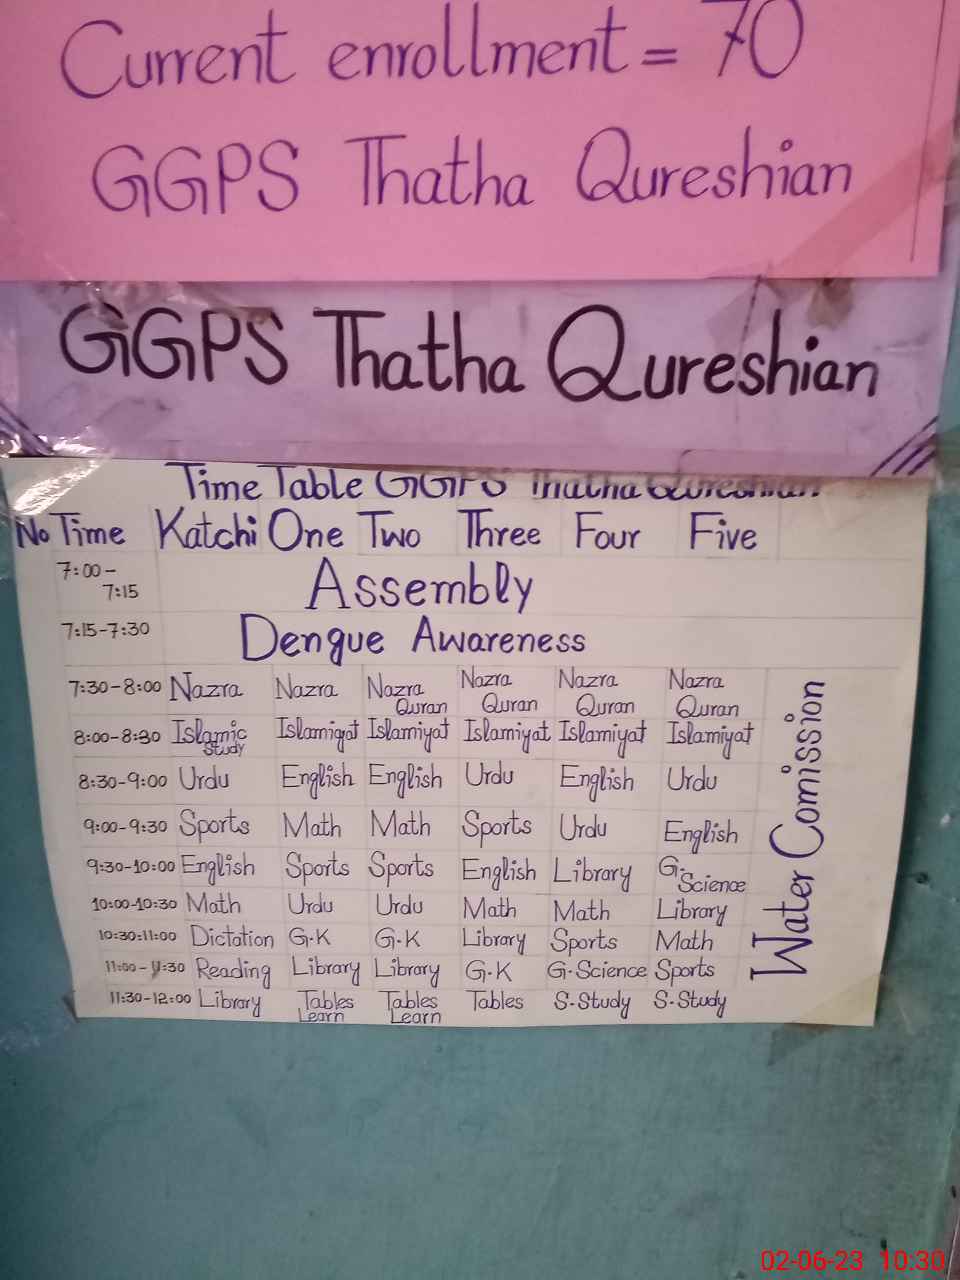 Current enrollment = 70
GGPS Thatha Qureshian
GGPS Thatha Qureshian
Time Table GGPS Thatha Qureshian
No Time Katchi One Two Three Four Five
7:00-7:15 Assembly
7:15-7:30 Dengue Awareness
7:30-8:00 Nazra Nazra Nazra Quran Nazra Quran Nazra Quran Nazra Quran
8:00-8:30 Islamic Study Islamiyat Islamiyat Islamiyat Islamiyat Islamiyat
8:30-9:00 Urdu English English Urdu English Urdu
9:00-9:30 Sports Math Math Sports Urdu English
9:30-10:00 English Sports Sports English Library G.Science
10:00-10:30 Math Urdu Urdu Math Math Library
10:30:11:00 Dictation G.K G.K Library Sports Math
11:00-11:30 Reading Library Library G.K G.Science Sports
11:30-12:00 Library Tables Learn Tables Learn Tables S.Study S.Study
Water Comission
02-06-23 10:30